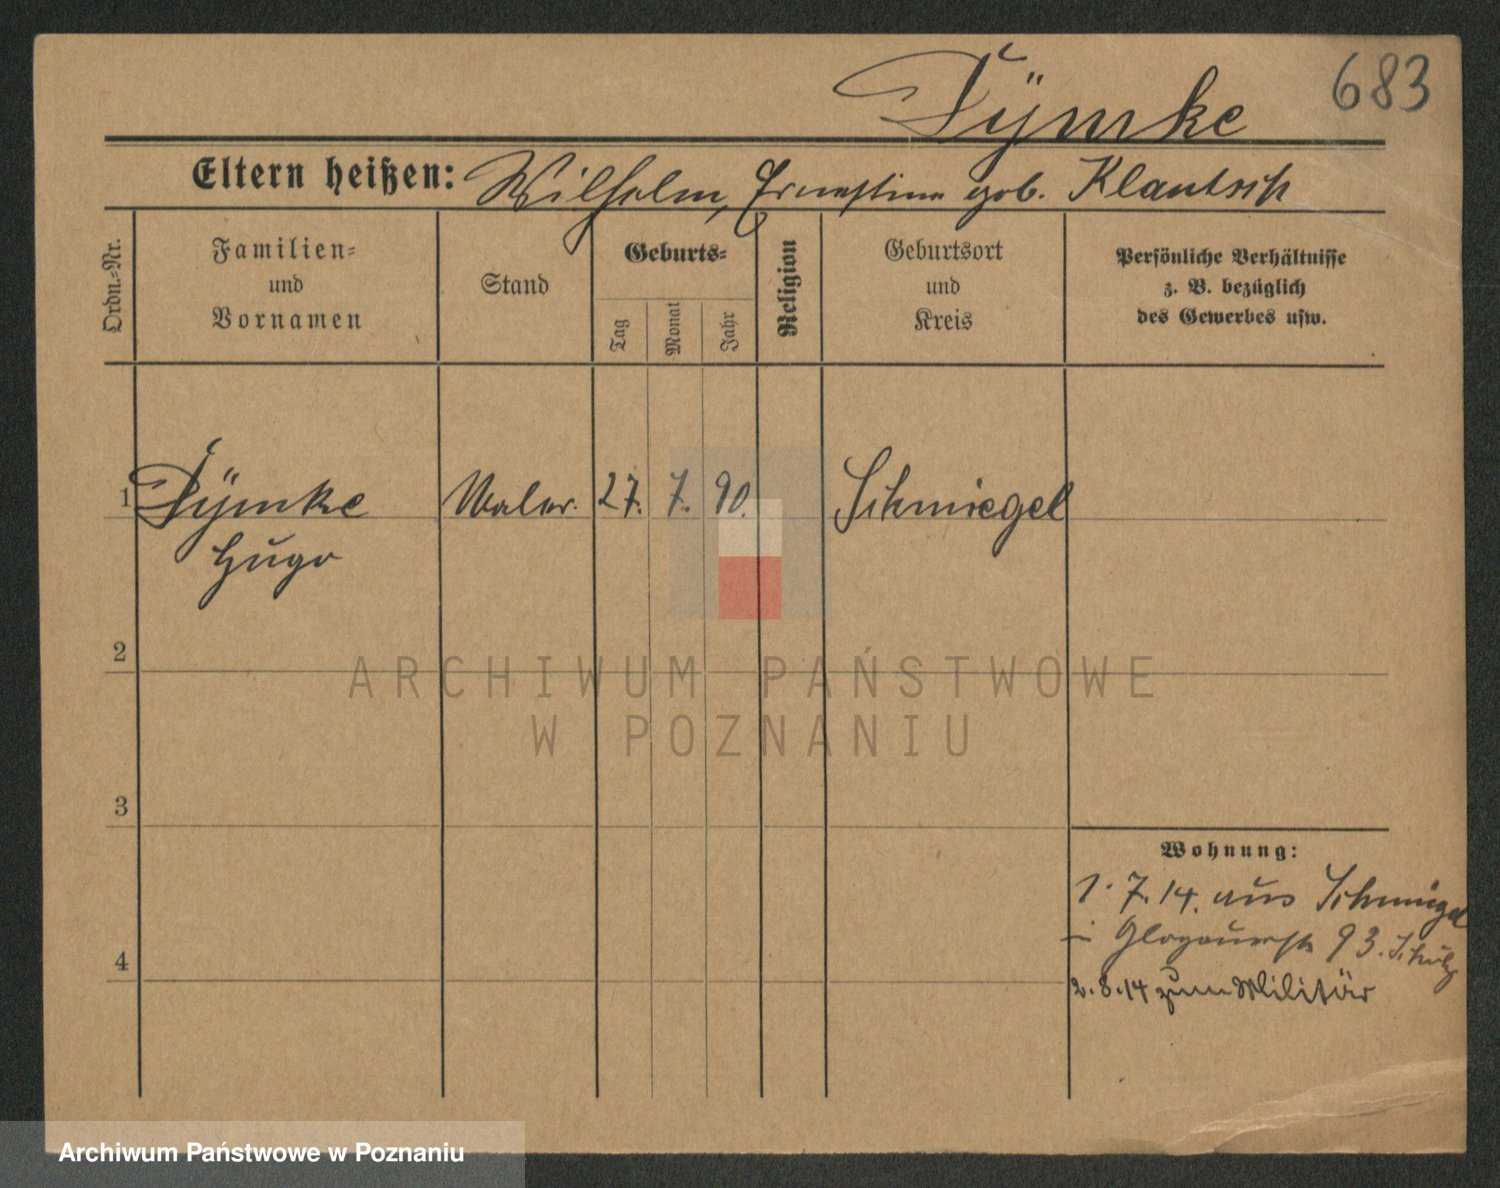 683
Tÿmke
Eltern heißen: Wilhelm, Ernestine geb. Klautsch
Ordn.-Nr.
Familien- und Vornamen
Stand
Geburts-
Tag
Monat
Jahr
Religion
Geburtsort und Kreis
Persönliche Verhältnisse z. B. bezüglich des Gewerbes usw.
1 Tÿmke Maler. 27. 7. 90. Schmiegel
Hugo
2
ARCHIWUM PAŃSTWOWE
W POZNANIU
3
Wohnung:
1. 7. 14. aus Schmiegel
Glogauerstr 93.
4
2. 8. 14 zum Militär
Archiwum Państwowe w Poznaniu